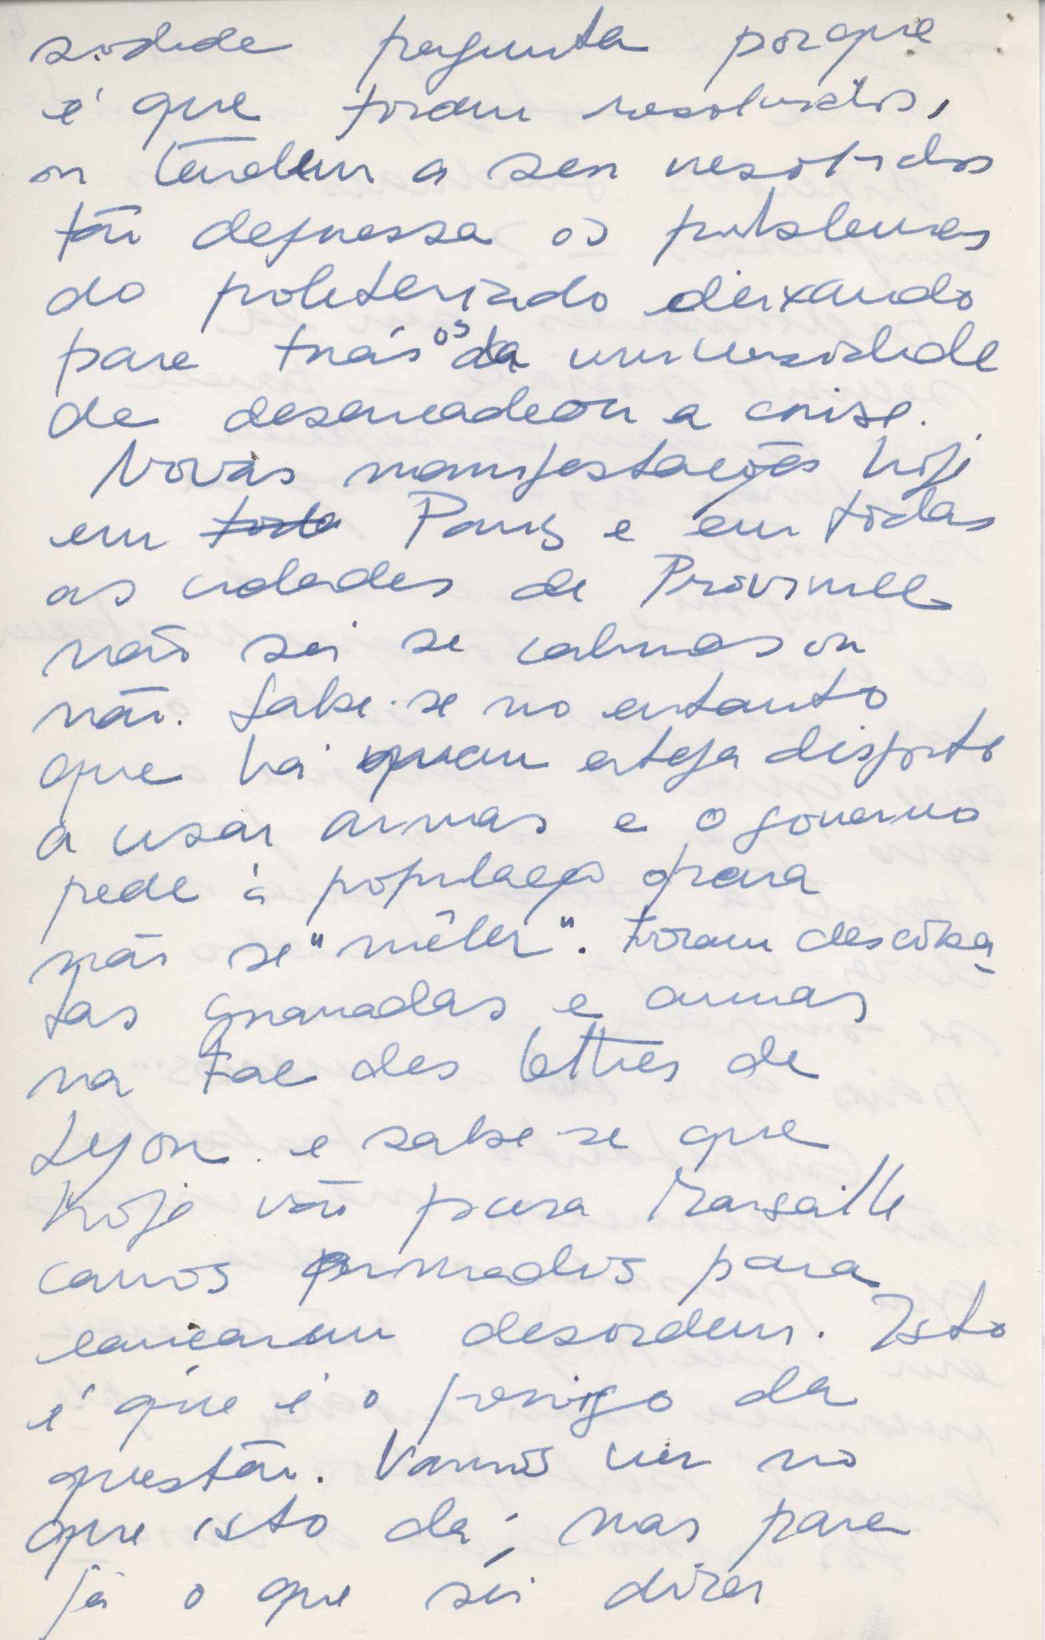 sidade pergunta porque
é que foram resolvidos,
ou tendem a ser resolvidos
tão depressa os problemas
do proletariado deixando
para trás os da universidade
de desencadeou a crise.
Novas manifestações hoje
em toda Paris e em todas
as cidades de Province
não sei se calmas ou
não. Sabe-se no entanto
que há quem esteja disposto
a usar armas e o governo
pede à população para
não se "mêler". Foram descober
tas granadas e armas
na Fac des lettres de
Lyon e sabe-se que
hoje vão para Marseille
carros armados para
lançarem desordem. Isto
é que é o perigo da
questão. Vamos ver no
que isto dá; mas para
já o que sei dizer